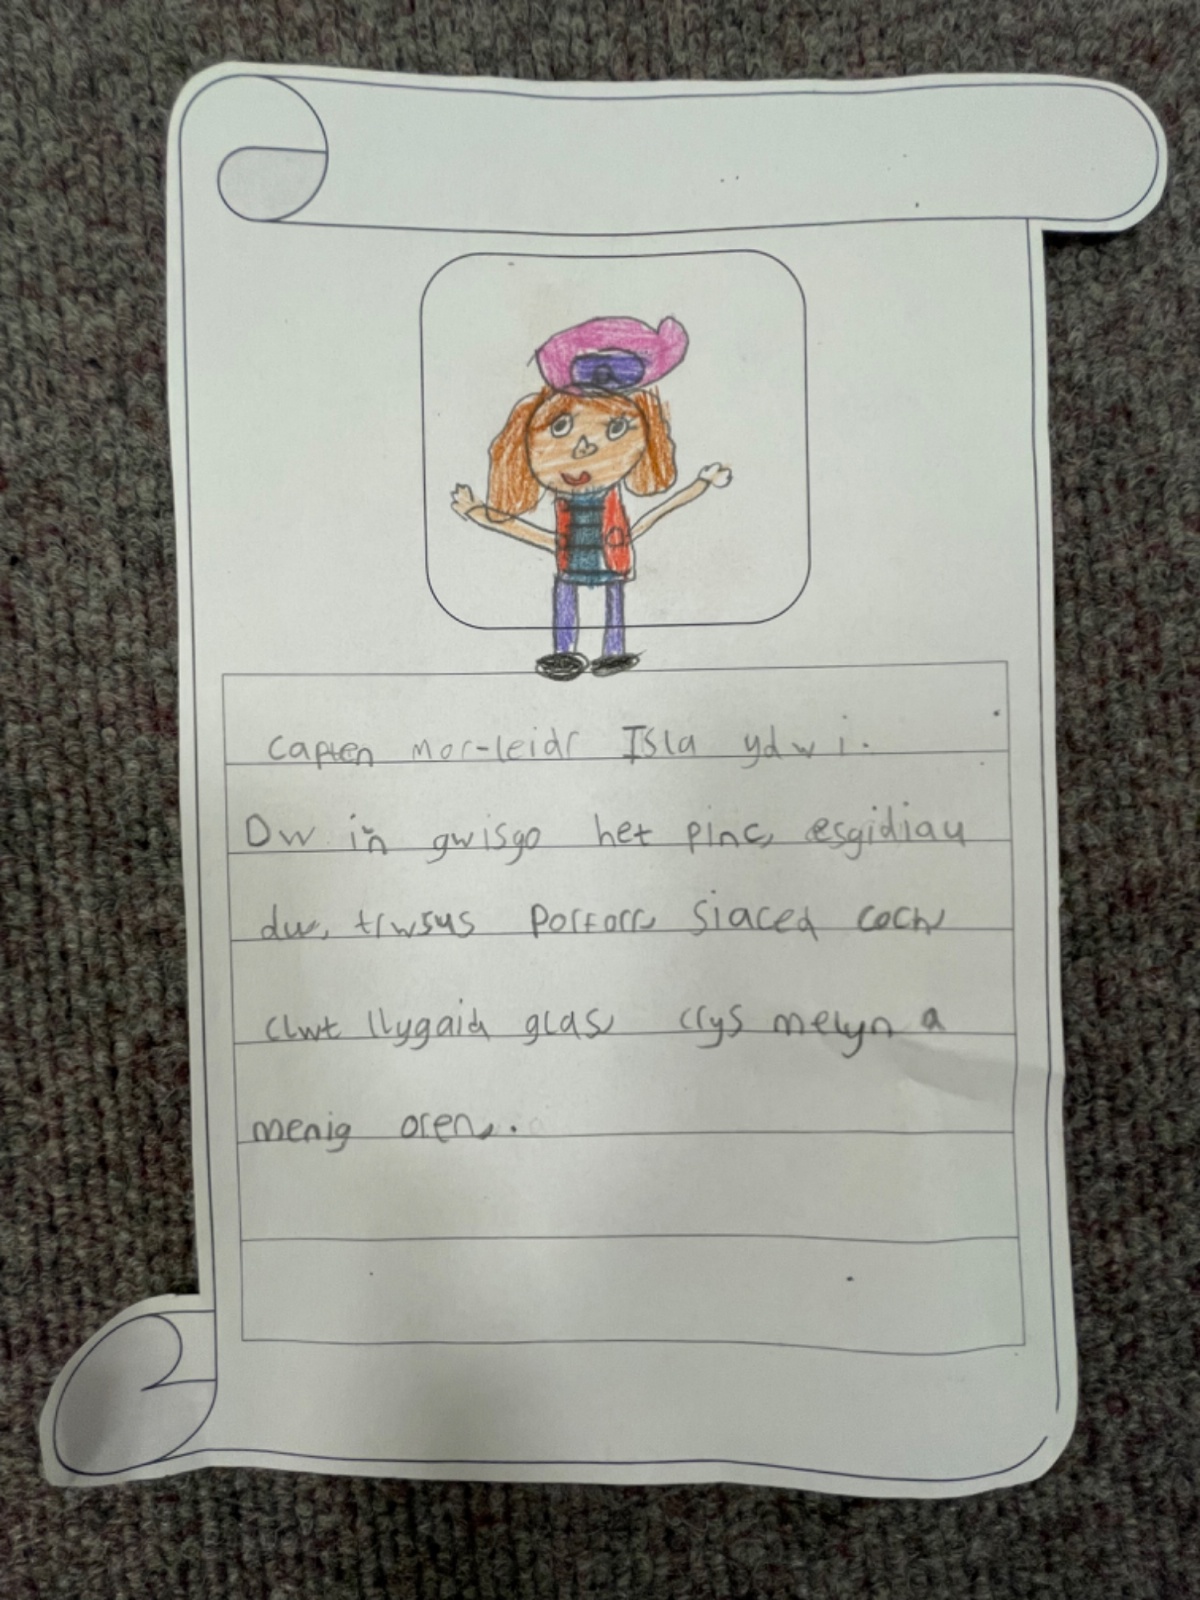 Capten mor-leidr Isla ydw i.
Dw i'n gwisgo het pinc, esgidiau
du, trwsus porffor, siaced coch,
clwt llygaid glas, crys melyn a
menig oren.